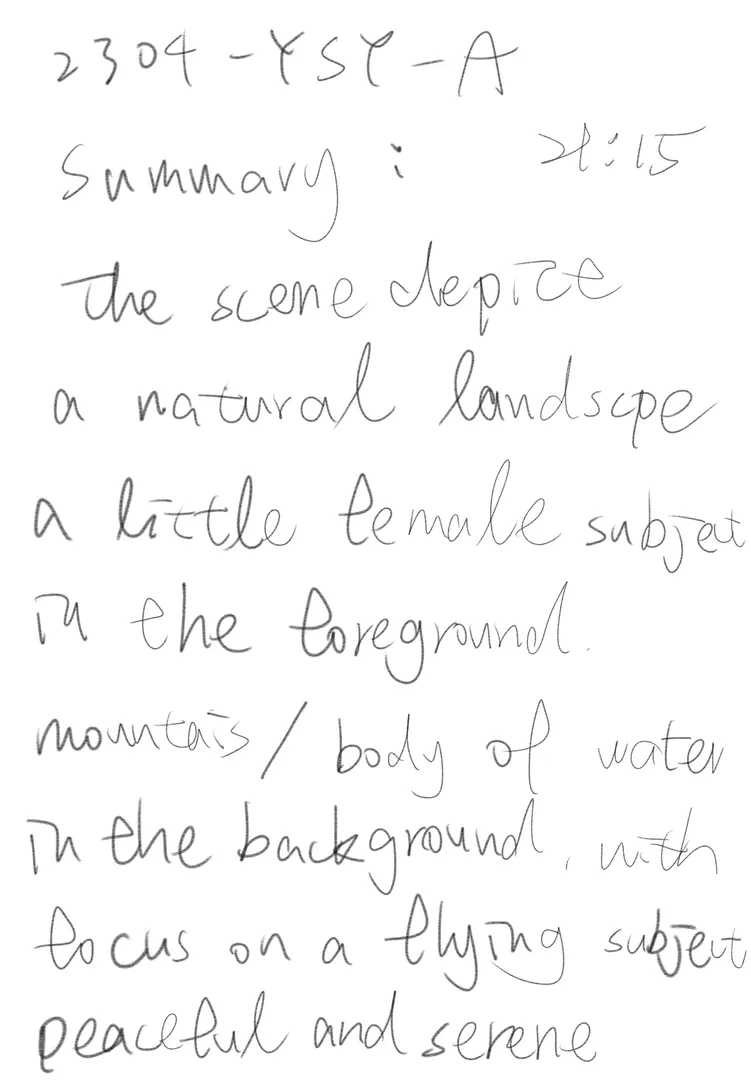 2304-YSY-A
Summary: 21:15
the scene depice
a natural landscpe
a little female subject
in the foreground.
mountais/body of water
in the background, with
focus on a flying subject
peaceful and serene